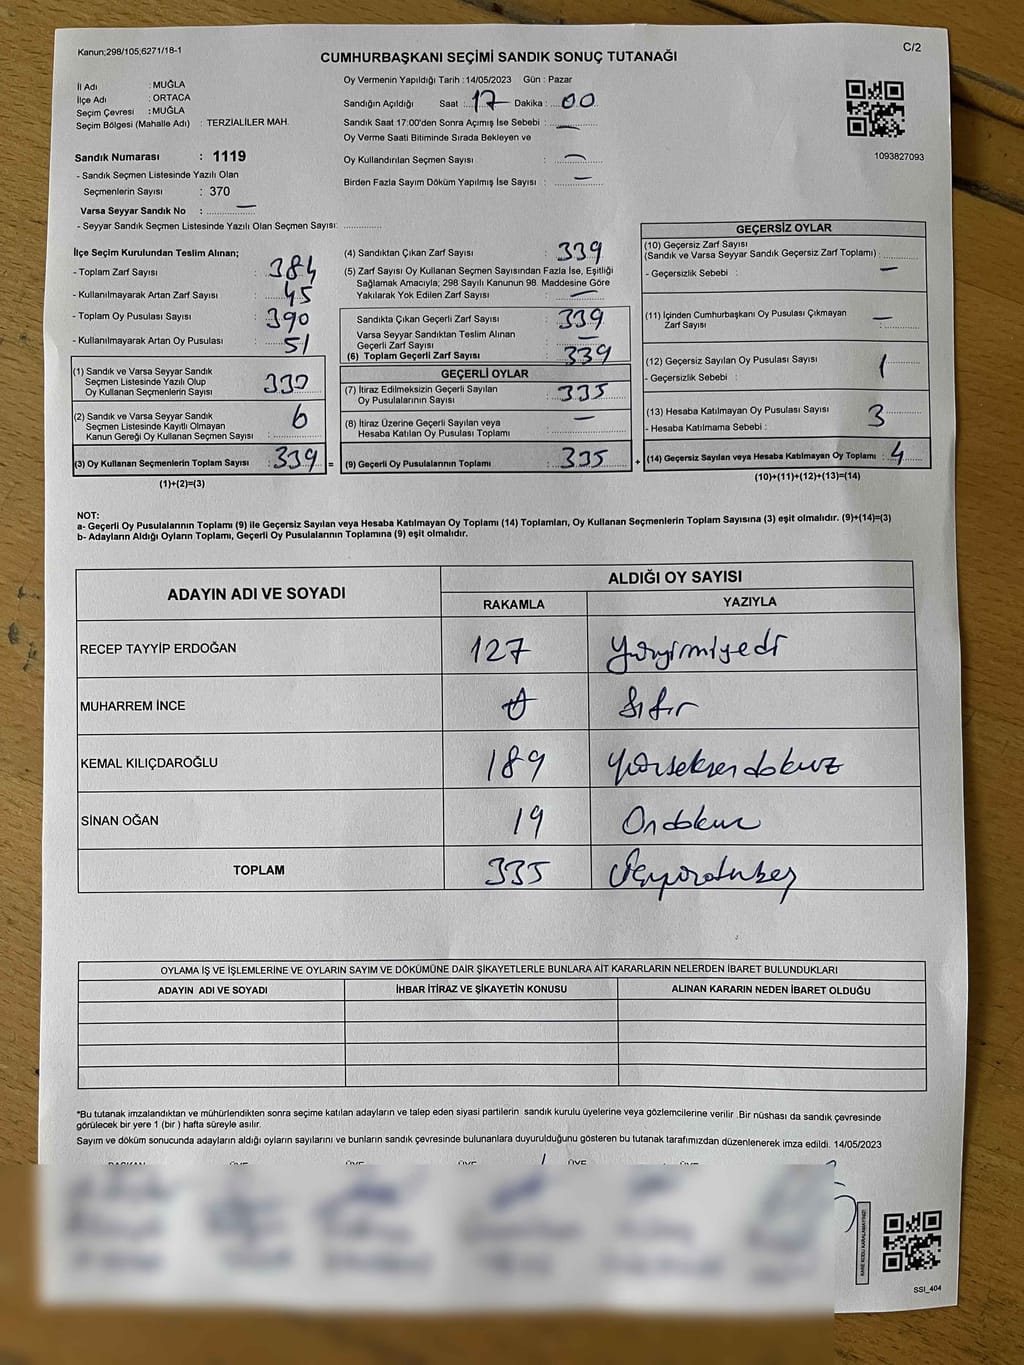 Kanun;298/105,6271/18-1
C/2
CUMHURBAŞKANI SEÇİMİ SANDIK SONUÇ TUTANAĞI
İl Adı : MUĞLA
İlçe Adı : ORTACA
Seçim Çevresi : MUĞLA
Seçim Bölgesi (Mahalle Adı) : TERZİALİLER MAH.
Sandık Numarası : 1119
- Sandık Seçmen Listesinde Yazılı Olan
Seçmenlerin Sayısı : 370
Varsa Seyyar Sandık No : —
- Seyyar Sandık Seçmen Listesinde Yazılı Olan Seçmen Sayısı:
Oy Vermenin Yapıldığı Tarih :14/05/2023 Gün : Pazar
Sandığın Açıldığı Saat : 17 Dakika : 00
Sandık Saat 17:00'den Sonra Açımış İse Sebebi : —
Oy Verme Saati Bitiminde Sırada Bekleyen ve
Oy Kullandırılan Seçmen Sayısı : —
Birden Fazla Sayım Döküm Yapılmış İse Sayısı : —
1093827093
İlçe Seçim Kurulundan Teslim Alınan;
- Toplam Zarf Sayısı : 384
- Kullanılmayarak Artan Zarf Sayısı : 45
- Toplam Oy Pusulası Sayısı : 390
- Kullanılmayarak Artan Oy Pusulası : 51
(1) Sandık ve Varsa Seyyar Sandık
Seçmen Listesinde Yazılı Olup
Oy Kullanan Seçmenlerin Sayısı :
(2) Sandık ve Varsa Seyyar Sandık
Seçmen Listesinde Kayıtlı Olmayan
Kanun Gereği Oy Kullanan Seçmen Sayısı : 6
(3) Oy Kullanan Seçmenlerin Toplam Sayısı : 339
(1)+(2)=(3)
(4) Sandıktan Çıkan Zarf Sayısı : 339
(5) Zarf Sayısı Oy Kullanan Seçmen Sayısından Fazla İse, Eşitliği
Sağlamak Amacıyla; 298 Sayılı Kanunun 98. Maddesine Göre
Yakılarak Yok Edilen Zarf Sayısı : —
Sandıkta Çıkan Geçerli Zarf Sayısı : 339
Varsa Seyyar Sandıktan Teslim Alınan
Geçerli Zarf Sayısı : —
(6) Toplam Geçerli Zarf Sayısı : 339
GEÇERLİ OYLAR
(7) İtiraz Edilmeksizin Geçerli Sayılan
Oy Pusulalarının Sayısı : 335
(8) İtiraz Üzerine Geçerli Sayılan veya
Hesaba Katılan Oy Pusulası Toplamı : —
= (9) Geçerli Oy Pusulalarının Toplamı : 335
GEÇERSİZ OYLAR
(10) Geçersiz Zarf Sayısı
(Sandık ve Varsa Seyyar Sandık Geçersiz Zarf Toplamı) :
- Geçersizlik Sebebi : —
(11) İçinden Cumhurbaşkanı Oy Pusulası Çıkmayan
Zarf Sayısı : —
(12) Geçersiz Sayılan Oy Pusulası Sayısı : 1
- Geçersizlik Sebebi :
(13) Hesaba Katılmayan Oy Pusulası Sayısı : 3
- Hesaba Katılmama Sebebi :
+ (14) Geçersiz Sayılan veya Hesaba Katılmayan Oy Toplamı : 4
(10)+(11)+(12)+(13)=(14)
NOT:
a- Geçerli Oy Pusulalarının Toplamı (9) ile Geçersiz Sayılan veya Hesaba Katılmayan Oy Toplamı (14) Toplamları, Oy Kullanan Seçmenlerin Toplam Sayısına (3) eşit olmalıdır. (9)+(14)=(3)
b- Adayların Aldığı Oyların Toplamı, Geçerli Oy Pusulalarının Toplamına (9) eşit olmalıdır.
ADAYIN ADI VE SOYADI
ALDIĞI OY SAYISI
RAKAMLA YAZIYLA
RECEP TAYYİP ERDOĞAN 127 Yüzyirmiyedi
MUHARREM İNCE 0 Sıfır
KEMAL KILIÇDAROĞLU 189 Yüzseksendokuz
SİNAN OĞAN 19 Ondokuz
TOPLAM 335 Üçyüzotuzbeş
OYLAMA İŞ VE İŞLEMLERİNE VE OYLARIN SAYIM VE DÖKÜMÜNE DAİR ŞİKAYETLERLE BUNLARA AİT KARARLARIN NELERDEN İBARET BULUNDUKLARI
ADAYIN ADI VE SOYADI İHBAR İTİRAZ VE ŞİKAYETİN KONUSU ALINAN KARARIN NEDEN İBARET OLDUĞU
*Bu tutanak imzalandıktan ve mühürlendikten sonra seçime katılan adayların ve talep eden siyasi partilerin sandık kurulu üyelerine veya gözlemcilerine verilir .Bir nüshası da sandık çevresinde
görülecek bir yere 1 (bir ) hafta süreyle asılır.
Sayım ve döküm sonucunda adayların aldığı oyların sayılarını ve bunların sandık çevresinde bulunanlara duyurulduğunu gösteren bu tutanak tarafımızdan düzenlenerek imza edildi. 14/05/2023
BAŞKAN ÜYE ÜYE ÜYE ÜYE ÜYE
KARE KODU KARALAMAYINIZ!
SSI_404